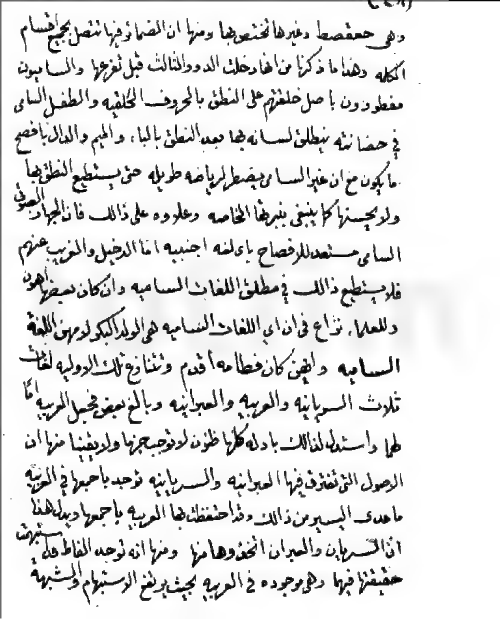 (٤٨)
وهي حعقصط وغيرها تختص بها ومنها ان الضمائر فيها تتصل بجميع اقسام
الكلمه وهذا ما ذكرنا من انها دخلت الدور الثالث قبل تفرعها والساميون
مفطورون باصل خلقتهم على النطق بالحروف الحلقيه والطفل السامي
في حضانته ينطلق لسانه بها بعد النطق بالباء والميم والدال بافصح
ما يكون مع ان غير السامي يضطر لرياضه طويله حتى يستطيع النطق بها
ولا يحسنها كما ينبغي بنبرتها الخاصه وعلاوه على ذالك فان الجهاز الصوتي
السامي مستعد للافصاح باي لغه اجنبيه اما الدخيل والغريب عنهم
فلا يستطيع ذالك في مطلق اللغات الساميه وان كان بعضها اهون
وللعلماء نزاع في ان اي اللغات الساميه هي الولد البكر لامهن اللغة
الساميه وايهن كان فطامه اقدم وتتنازع تلك الاوليه لغات
ثلاث السريانيه والعربيه والعبرانيه وبالغ بعض فجعل العربيه اما
لهما واستدل لذالك بادله كلها ظنون لا توجب جزما ولا يقينا منها ان
الاصول التي تفترق فيها العبرانيه والسريانيه توجد باجمعها في العربيه
ما عدى اليسير من ذالك وقد احتفظت بها العربيه باجمعها ويدل هذا
ان السريان والعبران اتخذوها منها ومنها انه توجد الفاظ قد ستبهمت
حقيقتها فيهما وهي موجوده في العربيه بحيث يرتفع الاستبهام والشبهة